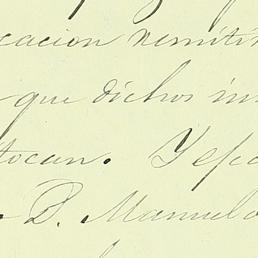 cacion remiti
que dichos in
tocan. Y esp
D. Manuel